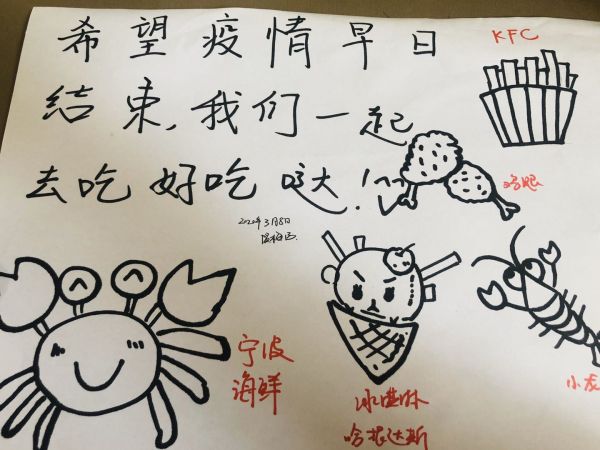 希望疫情早日
结束,我们一起
去吃好吃哒!
2020年3月8日
KFC
鸡腿
宁波
海鲜
冰淇淋
哈根达斯
小龙